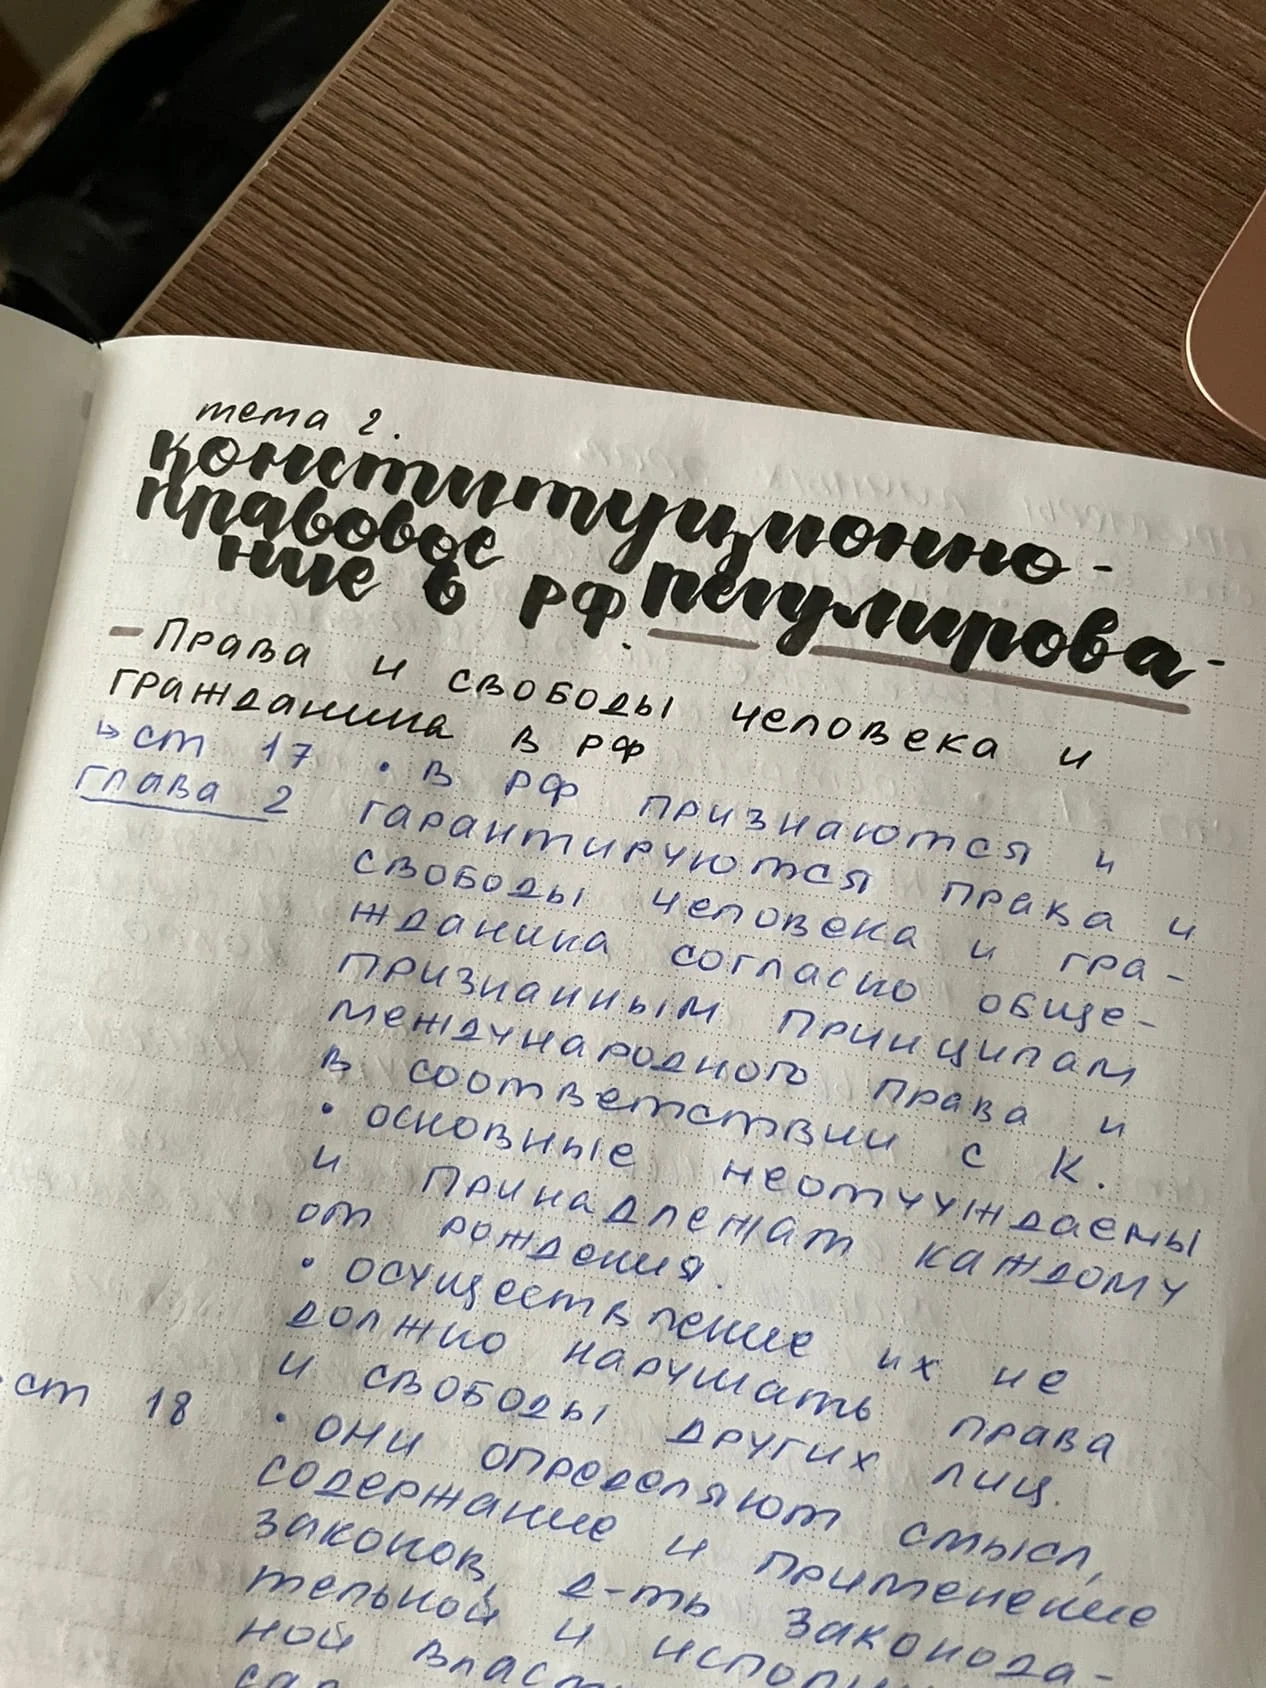 тема 2.
конституционно-
правовое регулирова-
ние в РФ.
– Права и свободы человека и
гражданина в РФ
↳ ст 17 • в РФ признаются и
глава 2 гарантируются права и
свободы человека и гра-
жданина согласно обще-
признанным принципам
международного права и
в соответствии с К.
• основные неотчуждаемы
и принадлежат каждому
от рождения.
• осуществление их не
должно нарушать права
и свободы других лиц.
ст 18 • они определяют смысл,
содержание и применение
законов, д-ть законода-
тельной и исполни
ной власт